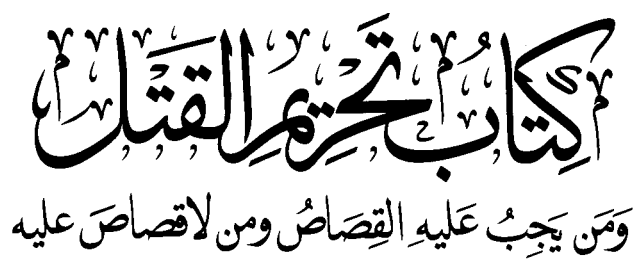 كِتَابُ تَحْرِيمِ القَتْل
وَمَن يَجِبُ عَليهِ القِصَاصُ ومن لاقصاصَ عليه